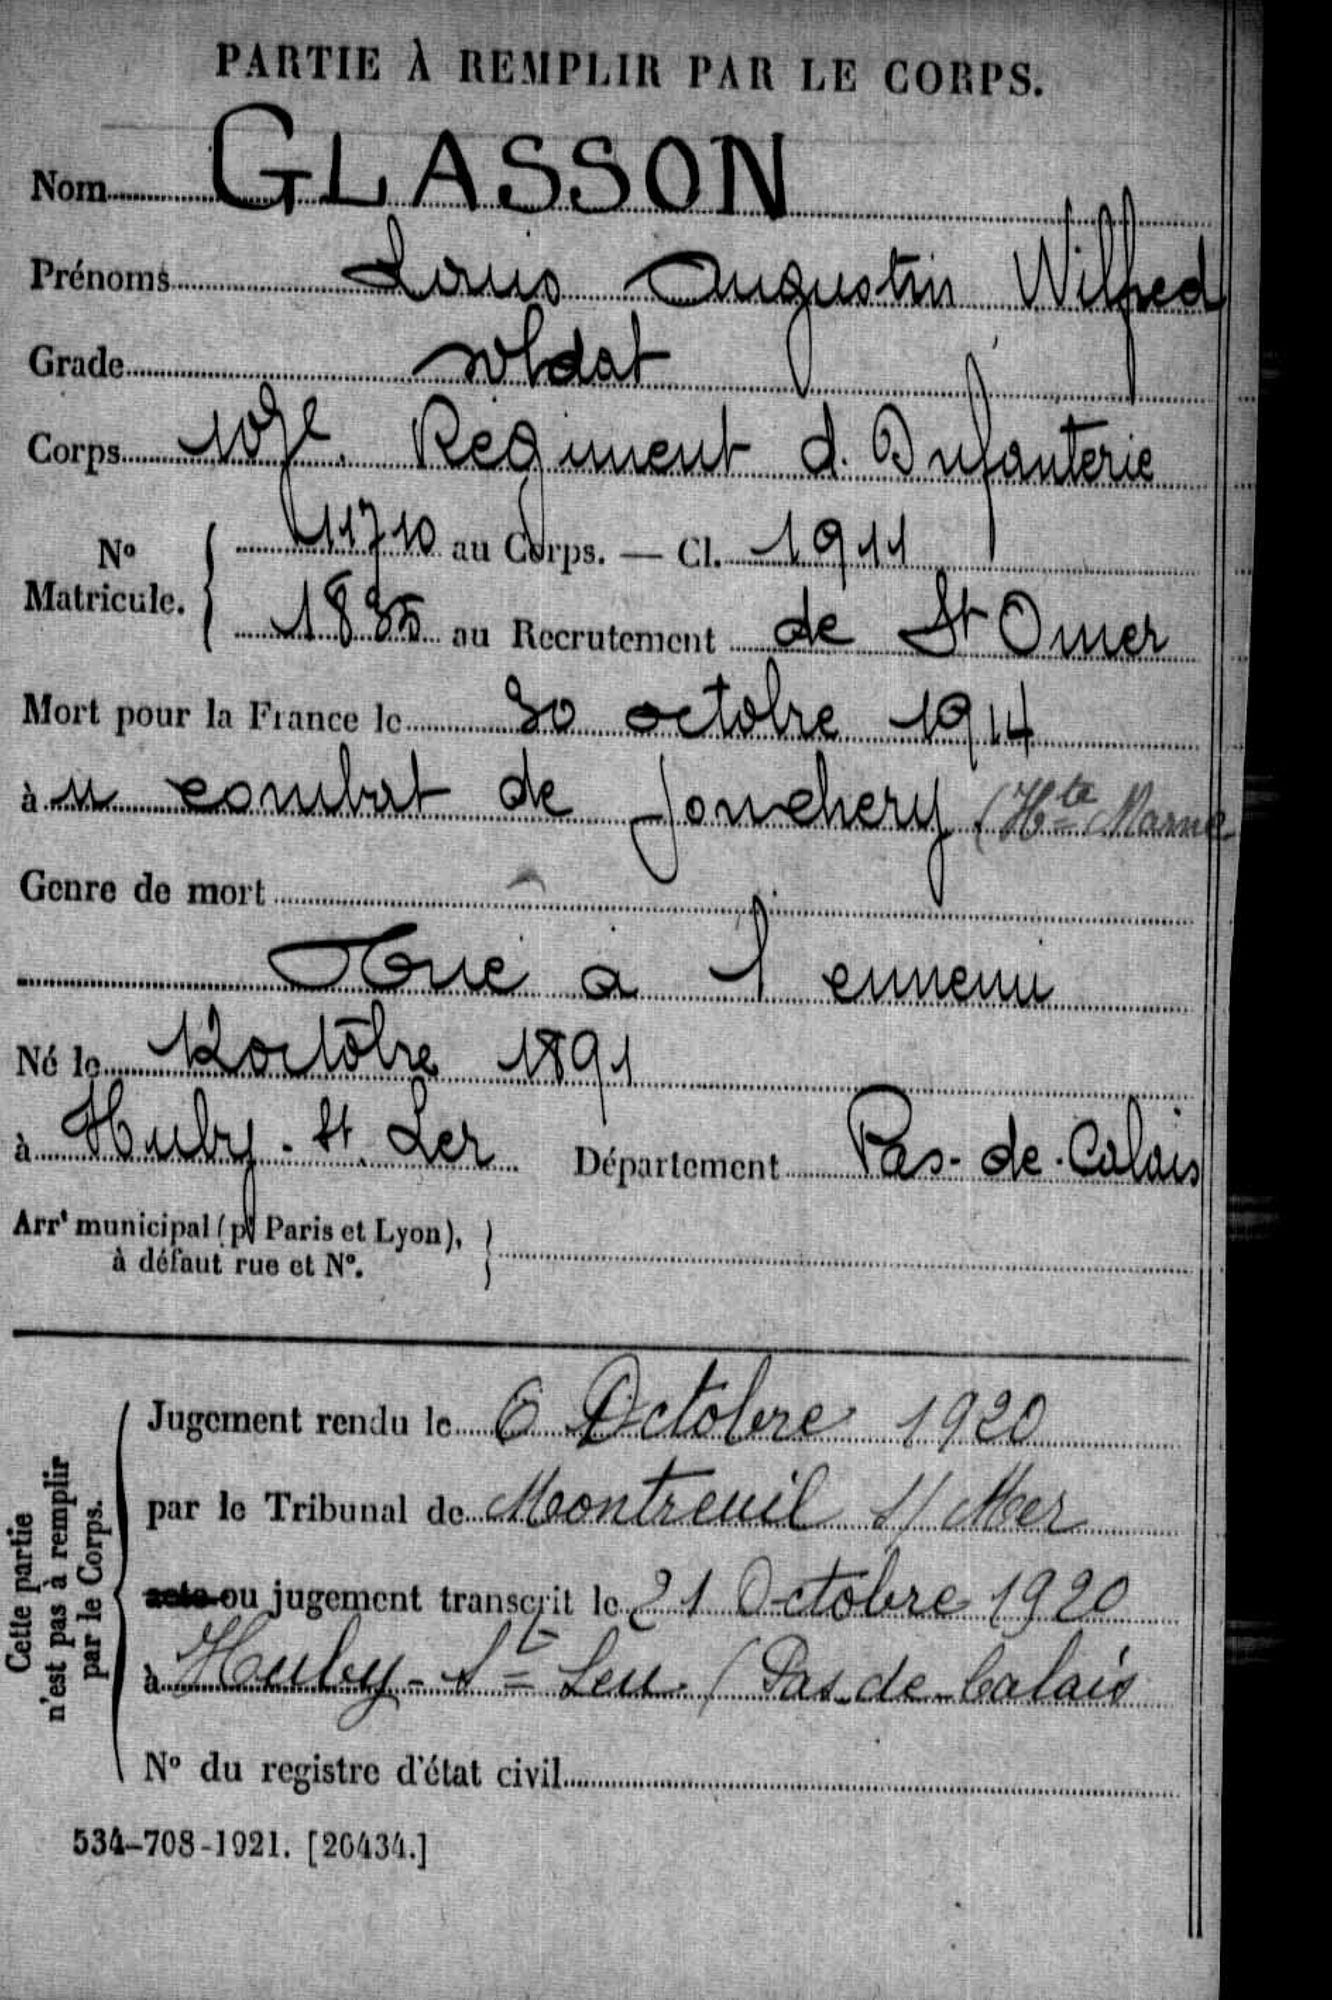 PARTIE À REMPLIR PAR LE CORPS.
Nom GLASSON
Prénoms Louis Augustin Wilfred
Grade soldat
Corps Régiment d. Infanterie
No Matricule. 11710 au Corps. — Cl. 1911
au Recrutement de St Omer
Mort pour la France le 30 octobre 1914
à u combat de Jonchery (Hte Marne
Genre de mort
Tué a l ennemi
Né le 12 octobre 1891
à Huby-St. Ler Département Pas-de-Calais
Arrt municipal (pt Paris et Lyon),
à défaut rue et No.
Cette partie
n'est pas à remplir
par le Corps.
Jugement rendu le 6 Octobre 1920
par le Tribunal de Montreuil s/ Mer
acte ou jugement transcrit le 21 Octobre 1920
à Huby-St Leu (Pas-de-Calais
No du registre d'état civil
534-708-1921. [26434.]